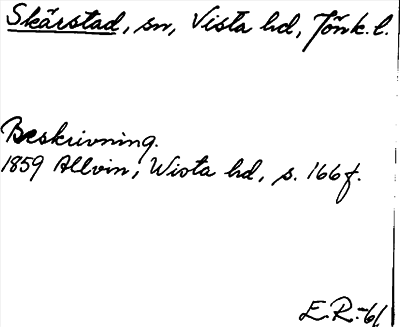 Skärstad, sn, Vista hd, Jönk. l.
Beskrivning.
1859 Allvin, Wista hd, s. 166 f.
E.R.-61